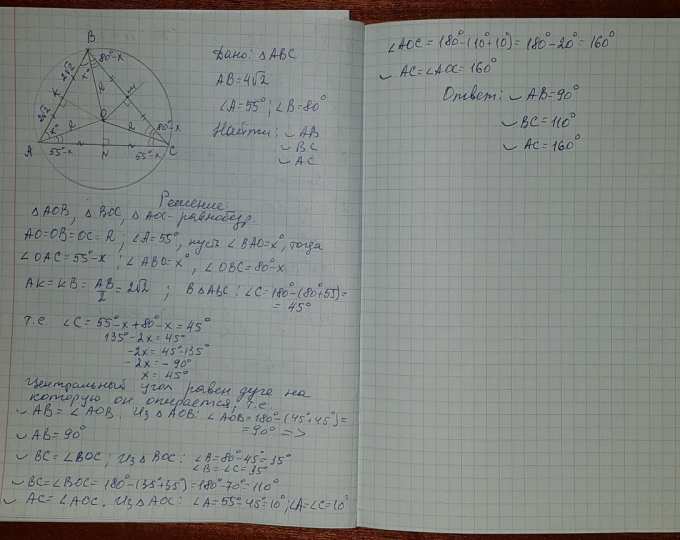 B
80°-x
x°
2√2
K
2√2
R
M
O
x°
R
R
80°-x
A
55°-x
N
55°-x
C
Дано: △ABC
AB=4√2
∠A=55°; ∠B=80°
Найти: ◡AB
◡BC
◡AC
Решение:
△AOB, △BOC, △AOC - равнобедр.
AO=OB=OC=R; ∠A=55°, пусть ∠BAO=x°, тогда
∠OAC=55°-x; ∠ABO=x°, ∠OBC=80°-x
AK=KB=AB/2=2√2; В △ABC: ∠C=180°-(80°+55)=
=45°
т.е. ∠C=55°-x+80°-x=45°
135°-2x=45°
-2x=45°-135°
-2x=-90°
x=45°
Центральный угол равен дуге на
которую он опирается, т.е.
◡AB=∠AOB. Из △AOB: ∠AOB=180°-(45°+45°)=
=90° =>
◡AB=90°
◡BC=∠BOC; Из △BOC: ∠B=80°-45°=35°
∠B=∠C=35°
◡BC=∠BOC=180°-(35°+35°)=180°-70°=110°
◡AC=∠AOC. Из △AOC: ∠A=55°-45°=10°; ∠A=∠C=10°
∠AOC=180°-(10°+10°)=180°-20°=160°
◡AC=∠AOC=160°
Ответ: ◡AB=90°
◡BC=110°
◡AC=160°